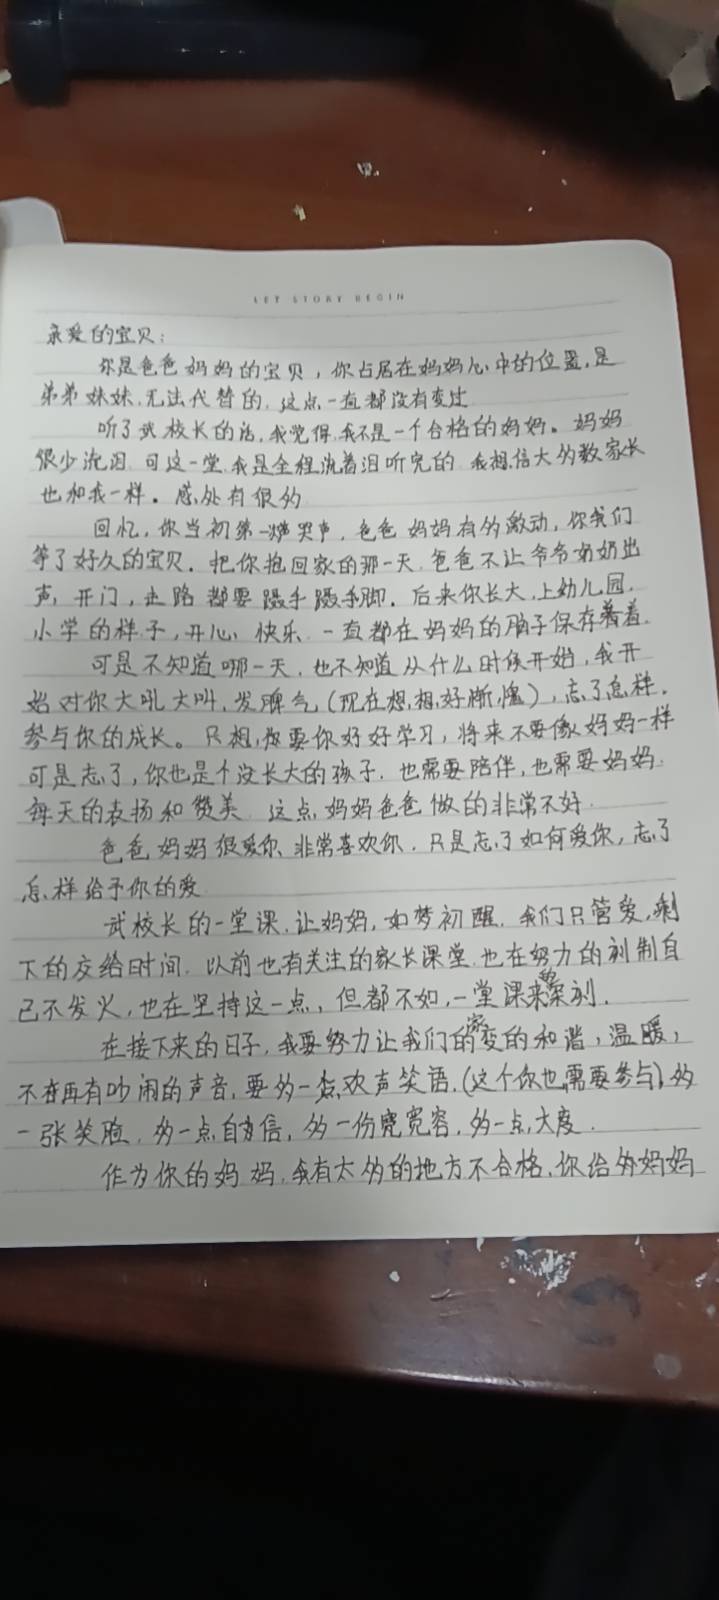 LET STORY BEGIN
亲爱的宝贝：
你是爸爸妈妈的宝贝，你占居在妈妈心中的位置，是
弟弟妹妹，无法代替的，这点一直都没有变过
听了武校长的话，我觉得，我不是一个合格的妈妈。妈妈
很少流泪，可这一堂，我是全程流着泪听完的，我想，信大多数家长
也和我一样。感处有很多
回忆，你当初第一声哭声，爸爸妈妈有多激动，你我们
等了好久的宝贝，把你抱回家的那一天，爸爸不让爷爷奶奶出
声，开门，走路都要蹑手蹑手脚，后来你长大，上幼儿园，
小学的样子，开心，快乐，一直都在妈妈的脑子保存着。
可是不知道哪一天，也不知道从什么时候开始，我开
始对你大吼大叫，发脾气（现在想，想，好惭愧），忘了怎样，
参与你的成长。只想，要你好好学习，将来不要像妈妈一样
可是忘了，你也是个没长大的孩子，也需要陪伴，也需要妈妈
每天的表扬和赞美，这点，妈妈爸爸做的非常不好，
爸爸妈妈很爱你，非常喜欢你，只是忘了如何爱你，忘了
怎样给予你的爱
武校长的一堂课，让妈妈，如梦初醒，我们只管爱，剩
下的交给时间，以前也有关注的家长课堂，也在努力的刻制自
己不发火，也在坚持这一点，但都不如，一堂课来的深刻，
在接下来的日子，我要努力让我们的家变的和谐，温暖，
不在再有吵闹的声音，要多一点，欢声笑语，（这个你也需要参与），多
一张笑脸，多一点自信，多一份宽容，多一点，大度，
作为你的妈妈，我有太多的地方不合格，你给多妈妈